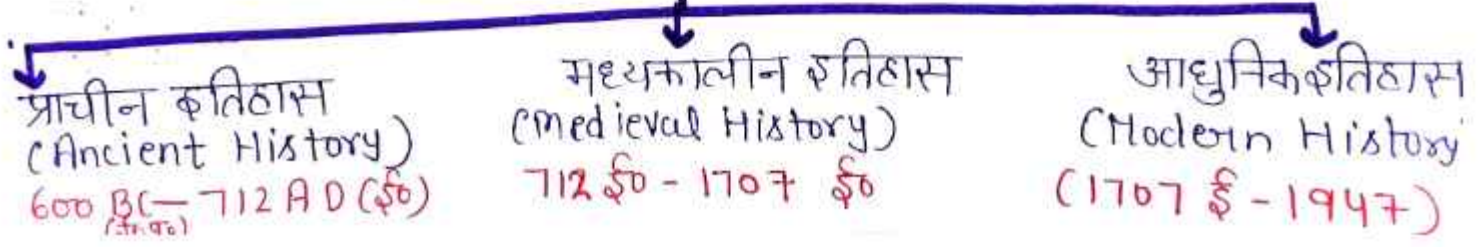 प्राचीन इतिहास
(Ancient History)
600 BC — 712 AD (ई०)
(ई०पू०)
मध्यकालीन इतिहास
(Medieval History)
712 ई० - 1707 ई०
आधुनिक इतिहास
(Modern History
(1707 ई - 1947)